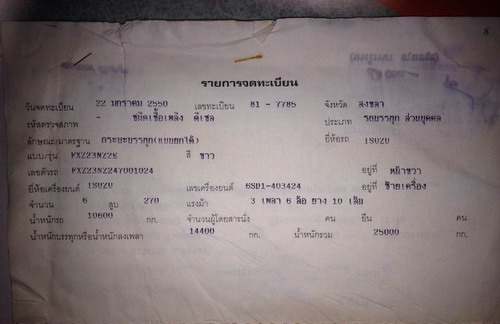 รายการจดทะเบียน
วันจดทะเบียน 22 มกราคม 2550 เลขทะเบียน 81 - 7785 จังหวัด สงขลา
รหัสตรวจสภาพ - ชนิดเชื้อเพลิง ดีเซล ประเภท รถบรรทุก ส่วนบุคคล
ลักษณะ/มาตรฐาน กระบะบรรทุก(แบบยกได้) ยี่ห้อรถ ISUZU
แบบ/รุ่น FXZ23NZ2E สี ขาว
เลขตัวรถ FXZ23NZ247001024 อยู่ที่ หน้าขวา
ยี่ห้อเครื่องยนต์ ISUZU เลขเครื่องยนต์ 6SD1-403424 อยู่ที่ ซ้ายเครื่อง
จำนวน 6 สูบ 270 แรงม้า 3 เพลา 6 ล้อ ยาง 10 เส้น
น้ำหนักรถ 10600 กก. จำนวนผู้โดยสารนั่ง คน ยืน คน
น้ำหนักบรรทุกหรือน้ำหนักลงเพลา 14400 กก. น้ำหนักรวม 25000 กก.